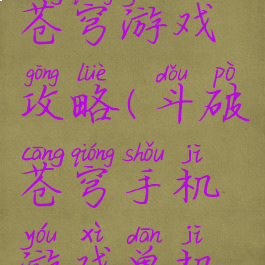 苍穹游戏
gōng lüè dǒu pò
攻略(斗破
cāng qióng shǒu jī
苍穹手机
yóu xì dān jī
游戏单机